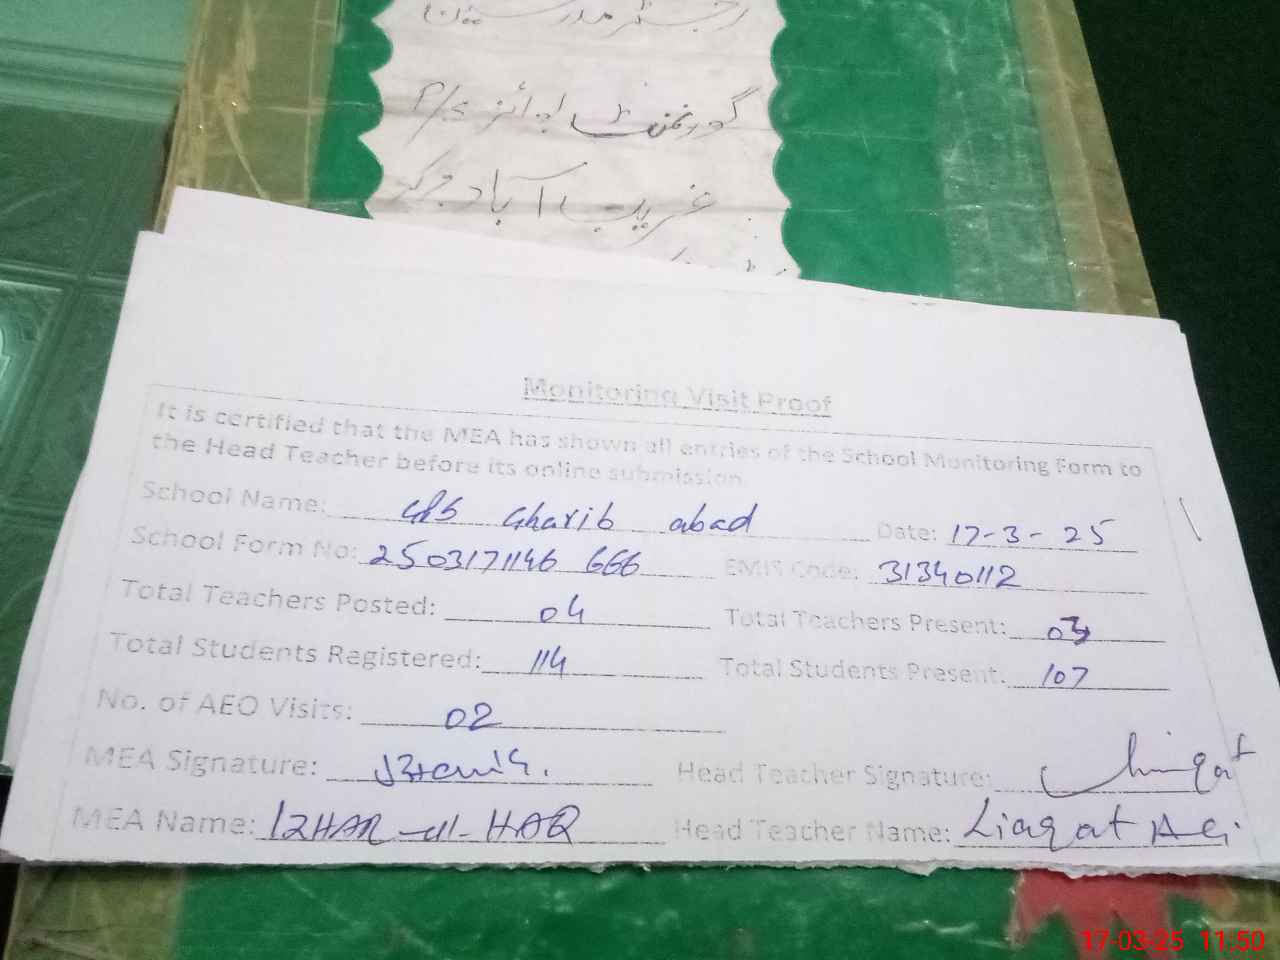 رجسٹر مدرسین
گورنمنٹ بوائز P/S
غریب آباد
Monitoring Visit Proof
It is certified that the MEA has shown all entries of the School Monitoring Form to
the Head Teacher before its online submission.
School Name: GPS Gharib abad Date: 17-3-25
School Form No: 2503171146 666 EMIS Code: 31340112
Total Teachers Posted: 04 Total Teachers Present: 03
Total Students Registered: 114 Total Students Present: 107
No. of AEO Visits: 02
MEA Signature: Head Teacher Signature: Liaqat
MEA Name: IZHAR-ul-HAQ Head Teacher Name: Liaqat Ali
17-03-25 11:50